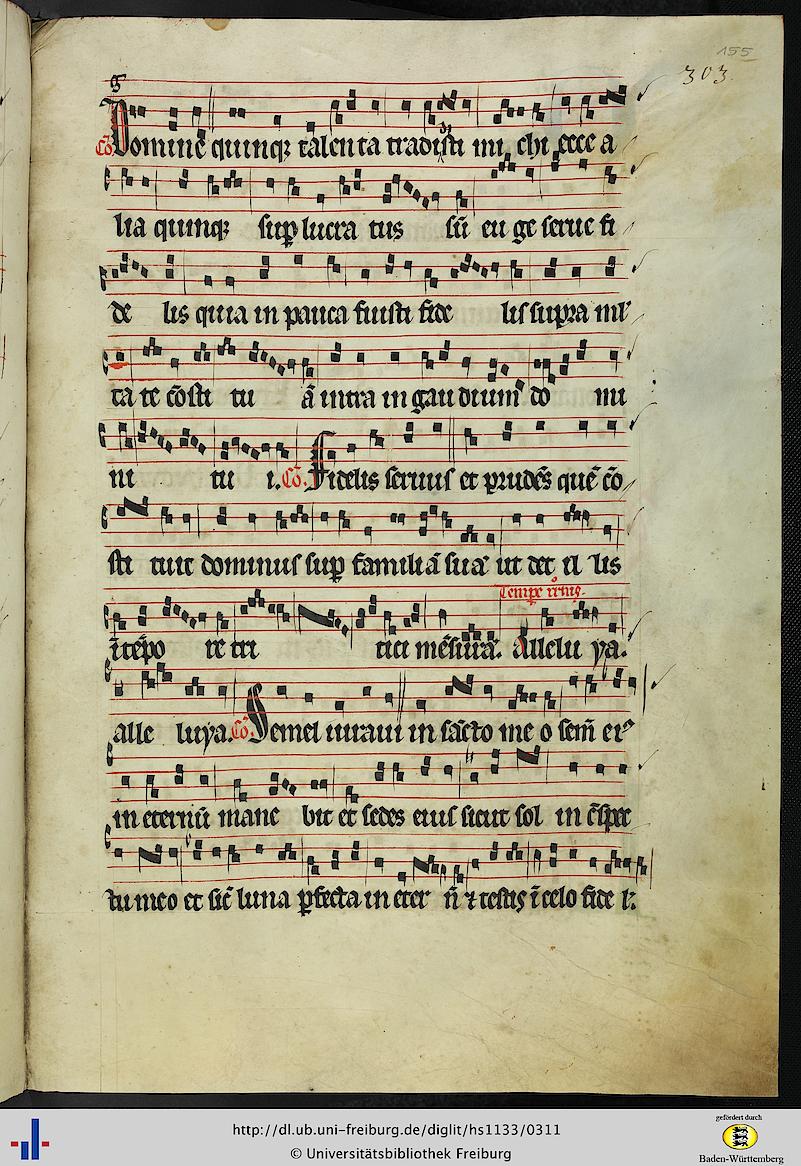 155
303.
Cõ. Domine quinqꝫ talenta tradisti mi chi ecce a
lia quinqꝫ suꝑ lucra tus sũ eu ge serue fi
de lis quia in pauca fuisti fide lis supra ml
ta te cõsti tu ã intra in gau dium do mi
ni tu i. Cõ. Fidelis seruus et prudẽs quẽ cõ
sti tuit dominus suꝑ familiã suã ut det il lis
Tempe
ĩ tẽpo re tri tici mẽsurã. Allelu ya.
alle luya. Cõ. Semel iuraui in sãcto me o sem̃ ei⁹
in eternũ mane bit et sedes eius sicut sol in cõspec
tu meo et sic̃ luna ꝑfecta in eter ñ ⁊ testis ĩ celo fide l.
http://dl.ub.uni-freiburg.de/diglit/hs1133/0311
© Universitätsbibliothek Freiburg
gefördert durch
Baden-Württemberg